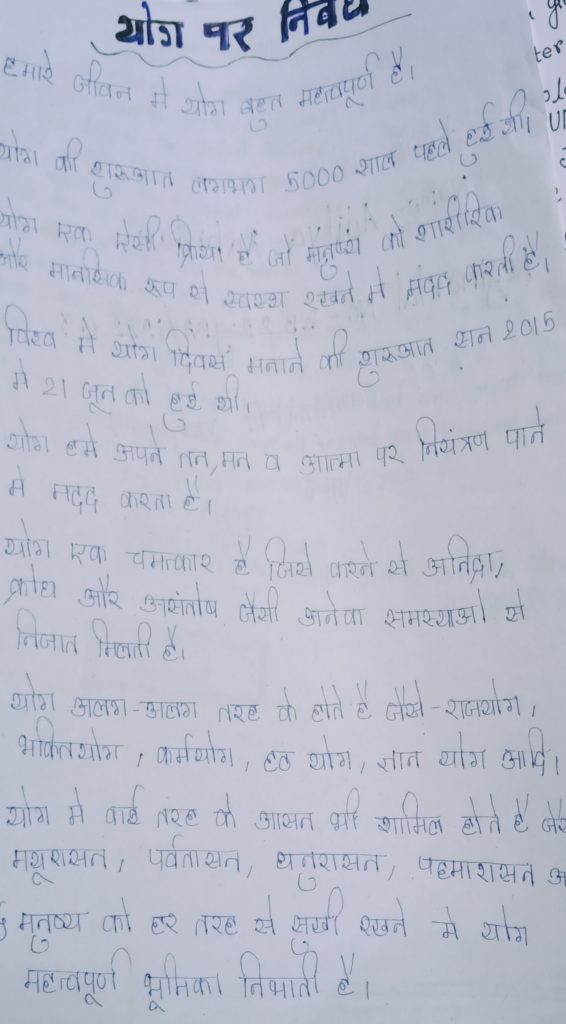 योग पर निबंध
हमारे जीवन मे योग बहुत महत्वपूर्ण है।
योग की शुरूआत लगभग 5000 साल पहले हुई थी।
योग एक ऐसी क्रिया है जो मनुष्य को शारीरिक
और मानसिक रूप से स्वस्थ रखने मे मदद करती है।
विश्व मे योग दिवस मनाने की शुरूआत सन 2015
मे 21 जून को हुई थी।
योग हमे अपने तन, मन व आत्मा पर नियंत्रण पाने
मे मदद करता है।
योग एक चमत्कार है जिसे करने से अनिद्रा,
क्रोध और असंतोष जैसी अनेक समस्याओ से
निजात मिलती है।
योग अलग-अलग तरह के होते है जैसे-राजयोग,
भक्तियोग, कर्मयोग, हठ योग, ज्ञान योग आदि।
योग मे कई तरह के आसन भी शामिल होते है
मयूरासन, पर्वतासन, धनुरासन, पहमाशसन
मनुष्य को हर तरह से सुखी रखने मे योग
महत्वपूर्ण भूमिका निभाती है।